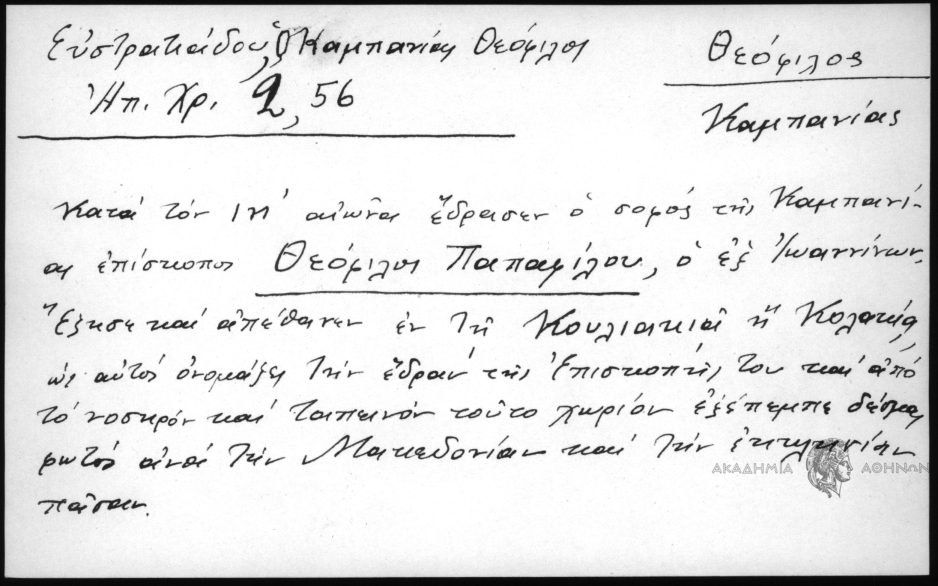 Εὐστρατιάδου, ὁ Καμπανίας Θεόφιλος
Ἠπ. Χρ. 2, 56
Θεόφιλος
Καμπανίας
Κατά τόν ΙΗ' αἰῶνα ἔδρασεν ὁ σοφός τῆς Καμπανί-
ας ἐπίσκοπος Θεόφιλος Παπαφίλου, ὁ ἐξ Ἰωαννίνων.
Ἔζησε καί ἀπέθανεν ἐν τῇ Κουλιακιᾷ ἤ Κολακιᾷ,
ὡς αὐτός ὀνομάζει τήν ἕδραν τῆς Ἐπισκοπῆς του καί ἀπό
τό νοσηρόν καί ταπεινόν τοῦτο χωρίον ἐξέπεμπε δέσμας
φωτός ἀνά τήν Μακεδονίαν καί τήν ἐκκλησίαν
πᾶσαν.
ΑΚΑΔΗΜΙΑ ΑΘΗΝΩΝ